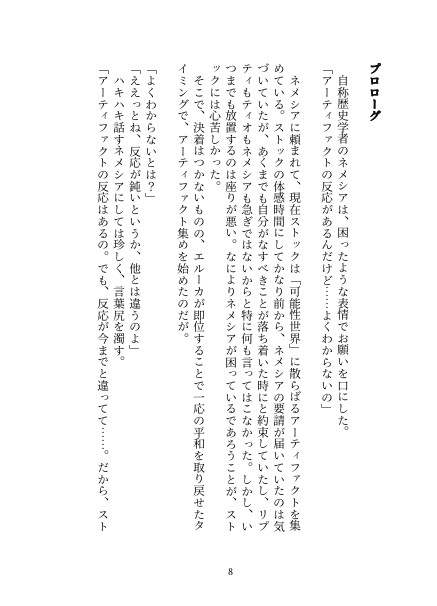 プロローグ
自称歴史学者のネメシアは、困ったような表情でお願いを口にした。
「アーティファクトの反応があるんだけど……よくわからないの」
ネメシアに頼まれて、現在ストックは「可能性世界」に散らばるアーティファクトを集
めている。ストックの体感時間にしてかなり前から、ネメシアの要請が届いていたのは気
づいていたが、あくまでも自分がなすべきことが落ち着いた時にと約束していたし、リプ
ティもティオもネメシアも急ぎではないからと特に何も言ってはこなかった。しかし、い
つまでも放置するのは座りが悪い。なによりネメシアが困っているであろうことが、スト
ックには心苦しかった。
そこで、決着はつかないものの、エルーカが即位することで一応の平和を取り戻せたタ
イミングで、アーティファクト集めを始めたのだが。
「よくわからないとは？」
「ええっとね、反応が鈍いというか、他とは違うのよ」
ハキハキ話すネメシアにしては珍しく、言葉尻を濁す。
「アーティファクトの反応はあるの。でも、反応が今までと違ってて……。だから、スト
8